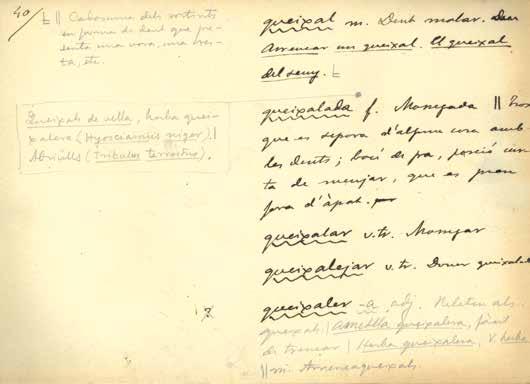 40
L || Cabosseres dels sortints
en forma de dent que pre-
senta una vora, una cres-
ta, etc.
Queixals de vella, herba quei-
xalera (Hyosciamus niger). |
Abriülls (Tribulus terrestris).
queixal m. Dent molar.
Arrencar un queixal. El queixal
del seny. L
queixalada f. Mossegada || Tros
que es separa d'alguna cosa amb
les dents; bocí de pa, porció cur-
ta de menjar, que es pren
fora d'àpat.
queixalar v. tr. Mossegar
queixalejar v. tr. Donar queixalad
?
queixaler -a adj. Relatiu als
queixals | Ametlla queixalera, fàcil
de trencar | Herba queixalera, V. herba
|| m. Arrencaqueixals.